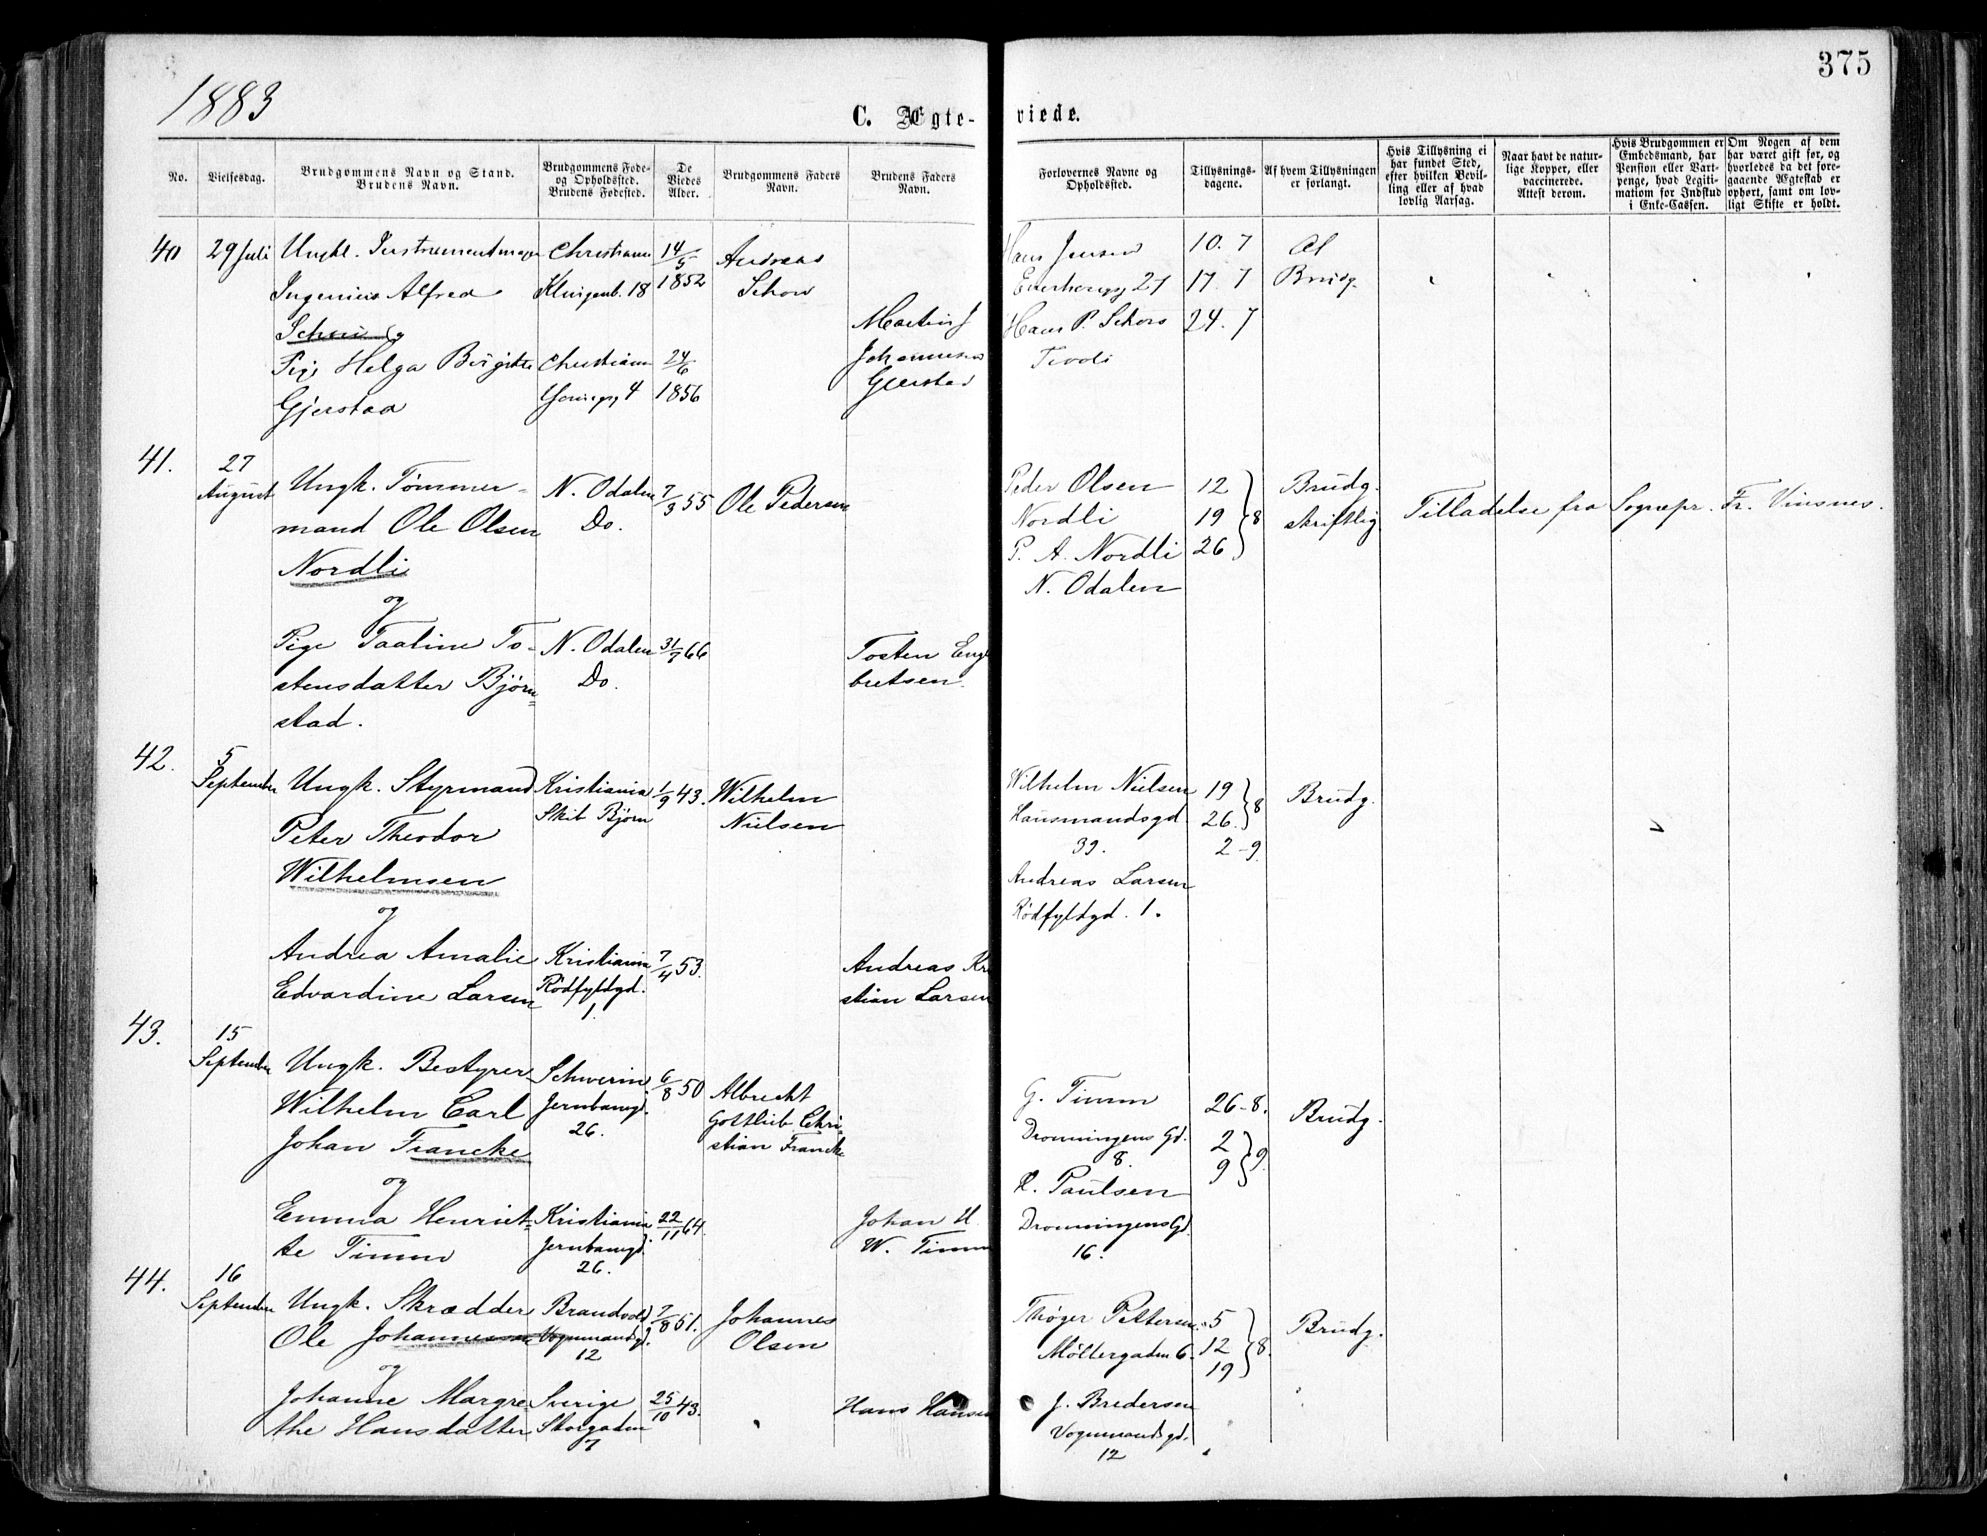 375
1883
C. Ægte-
viede.
No.
Vielsesdag.
Brudgommens Navn og Stand.
Brudens Navn.
Brudgommens Føde-
og Opholdssted.
Brudens Fødested.
De
Viedes
Alder.
Brudgommens Faders
Navn.
Brudens Faders
Navn.
Forlovernes Navne og
Opholdssted.
Tillysnings-
dagene.
Af hvem Tillysningen
er forlangt.
Hvis Tillysning ei
har fundet Sted,
efter hvilken Bevil-
ling eller af hvad
lovlig Aarsag.
Naar havt de natur-
lige Kopper, eller
vaccinerede.
Attest derom.
Hvis Brudgommen er
Embedsmand, har
Pension eller Vart-
penge, hvad Legiti-
mation for Indskud
i Enke-Cassen.
Om Nogen af dem
har været gift før, og
hvorledes da det fore-
gaaende Ægteskab er
ophørt, samt om lov-
ligt Skifte er holdt.
40
29 Juli
Ungkl. Instrumentmager
Ingenius Alfred
Schou og
Pige Helga Birgitte
Gjerstad
Christiania
Klingenb. 18
Christiania
4
14/5
1852
24/6
1856
Andreas
Schou
Martin J
Johannesen
Gjerstad
Hans Jensen
27
Hans P. Schou
Tivoli
10. 7
17. 7
24. 7
Af
Brudg.
41.
27
August
Ungk. Tømmer-
mand Ole Olsen
Nordli
og
Pige Taaline To-
stensdatter Bjørn=
stad.
N. Odalen
Do.
N. Odalen
Do.
7/3 55
31/7 66
Ole Pedersen
Tosten Engl
bretsen.
Peder Olsen
Nordli
P. A. Nordli
N. Odalen
12
19
26
8
Brudg.
skriftlig
Tilladelse fra Sognepr. Fr. Vinsnes.
42.
5
September
Ungk. Styrmand
Peter Theodor
Wilhelmsen
og
Andrea Amalie
Edvardine Larsen
Kristiania
Skib Bjørn
Kristiania
Rødfyldgd.
1.
1/9 43.
7/4 53.
Wilhelm
Nielsen
Andreas Kri
stian Larsen
Wilhelm Nielsen
Hausmandsgd.
39.
Andreas Larsen
Rødfyldgd. 1.
19
26.
8
2-9.
Brudg.
43.
15
September
Ungk. Bestyrer
Wilhelm Carl
Johan Francke
og
Emma Henriet=
te Timm
Schwerin
Jernbangd.
26.
Kristiania
Jernbangd.
26.
6/8 50
22/11 64.
Albrecht
Gottlieb Chri-
stian Francke
Johan H.
W. Timm
G. Timm
Dronningens Gd.
8.
Paulsen
Dronningens Gd.
16.
26-8.
2
9
9.
Brudg.
44.
16
September
Ungk. Skrædder
Ole Johannessen
og
Johanne Margre
the Hansdatter
Brandvold
Vognmandsgd.
12
Sverige
Storgaden
7
7/8 51.
25/10 43.
Johannes
Olsen
Hans Hansen
Thøger Pettersen
Møllergaden 6.
J. Bredersen
Vognmandsgd.
12
5
12
19
8.
Brudg.